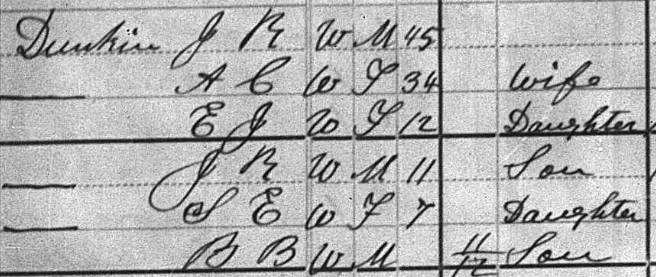 Dunkin J R W M 45
— A C W F 34 Wife
E J W F 12 Daughter
— J R W M 11 Son
— S E W F 7 Daughter
B B W M 11/12 Son